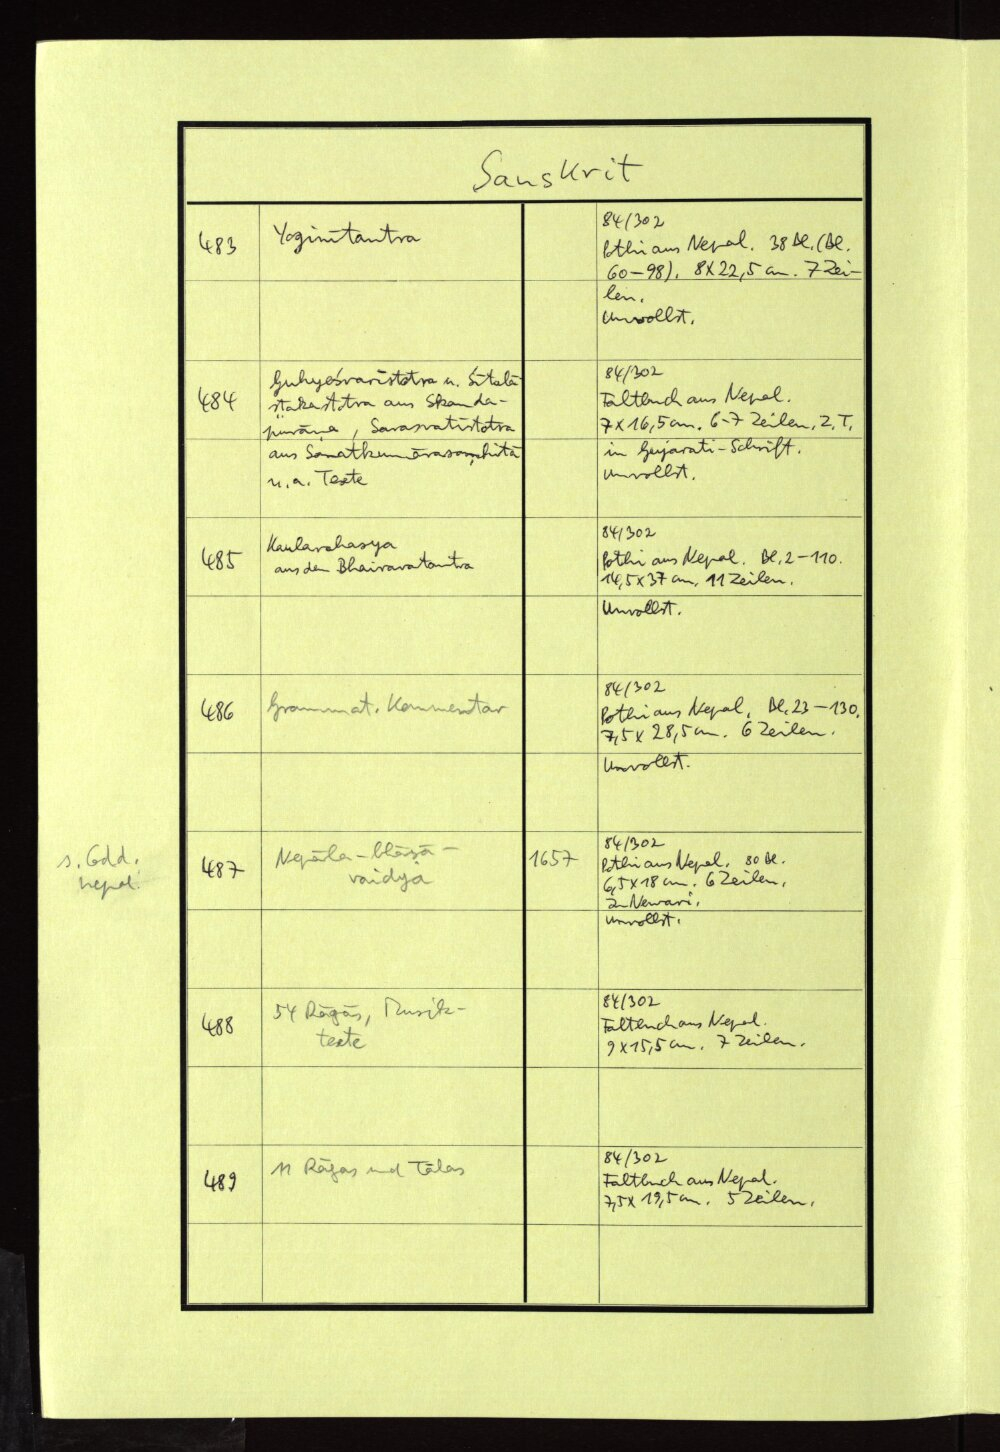 Sanskrit
483
Yoginītantra
84/302
Pothi aus Nepal. 38 Bl. (Bl.
60-98). 8x22,5 cm. 7 Zei-
len.
Unvollst.
484
Guhyeśvarīstotra u. Śītalā-
ṣṭakastotra aus Skanda-
purāṇa, Sarasvatīstotra
aus Sanatkumārasaṃhitā
u.a. Texte
84/302
Faltbuch aus Nepal.
7x16,5 cm. 6-7 Zeilen, z.T.
in Gujarati-Schrift.
Unvollst.
485
Kaularahasya
aus dem Bhairavatantra
84/302
Pothi aus Nepal. Bl. 2-110.
14,5x37 cm. 11 Zeilen.
Unvollst.
486
Grammat. Kommentar
84/302
Pothi aus Nepal. Bl. 23-130.
7,5x28,5 cm. 6 Zeilen.
Unvollst.
s. Codd.
nepal.
487
Nepāla-bhāṣā-
vaidya
1657
84/302
Pothi aus Nepal. 30 Bl.
6,5x18 cm. 6 Zeilen.
In Newari.
Unvollst.
488
54 Rāgās, Musik-
texte
84/302
Faltbuch aus Nepal.
9x15,5 cm. 7 Zeilen.
489
11 Rāgas und Tālas
84/302
Faltbuch aus Nepal.
7,5x19,5 cm. 5 Zeilen.